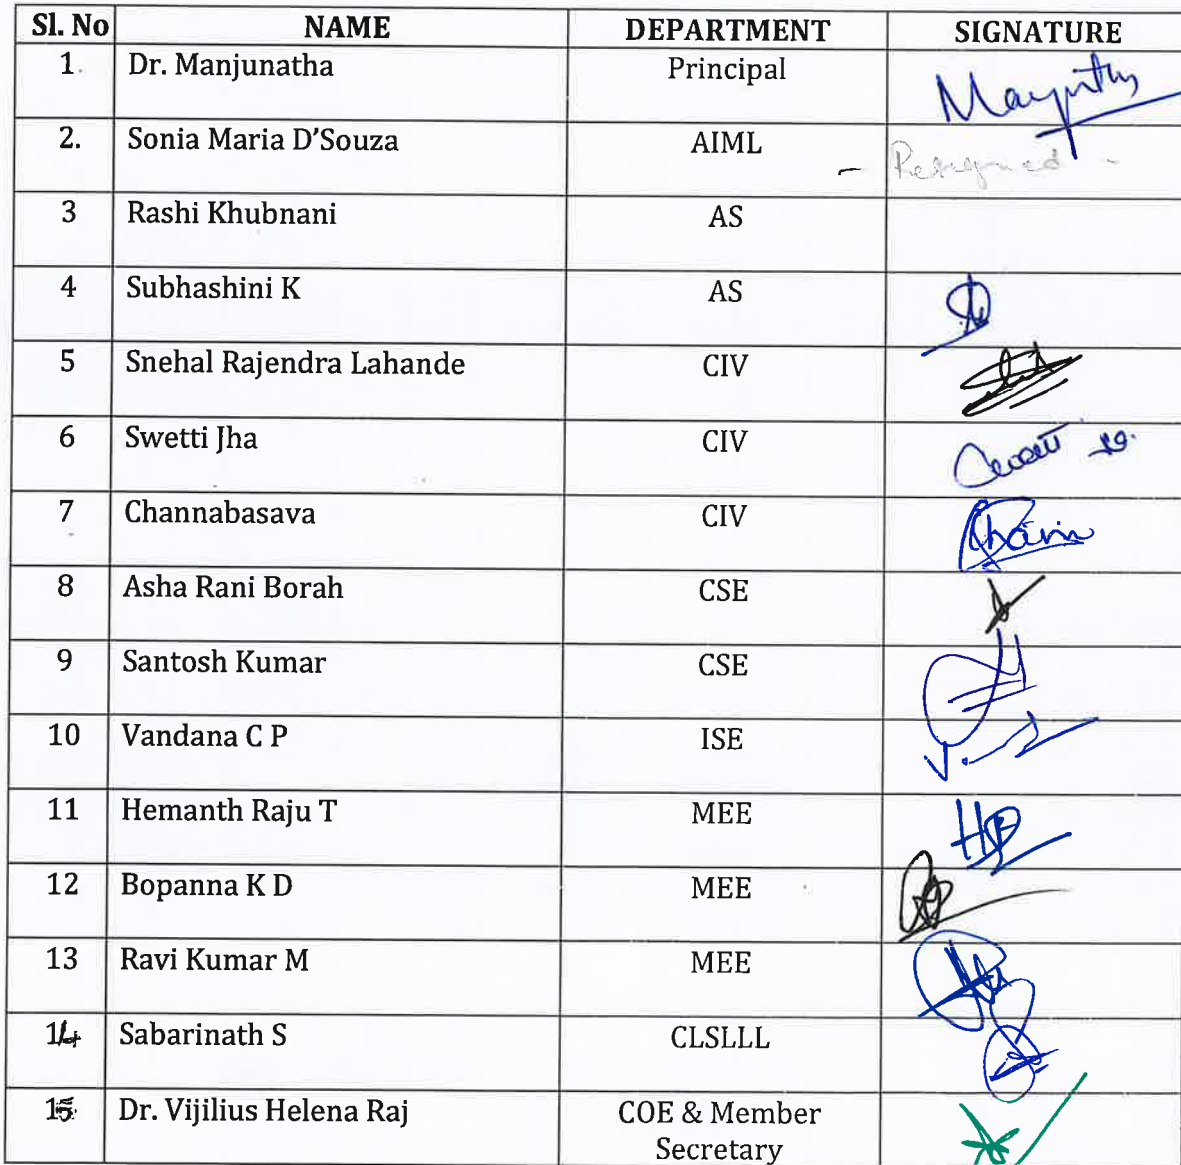 Sl. No NAME DEPARTMENT SIGNATURE
1. Dr. Manjunatha Principal
2. Sonia Maria D'Souza AIML - Resigned -
3 Rashi Khubnani AS
4 Subhashini K AS
5 Snehal Rajendra Lahande CIV
6 Swetti Jha CIV
7 Channabasava CIV
8 Asha Rani Borah CSE
9 Santosh Kumar CSE
10 Vandana C P ISE
11 Hemanth Raju T MEE
12 Bopanna K D MEE
13 Ravi Kumar M MEE
14 Sabarinath S CLSLLL
15 Dr. Vijilius Helena Raj COE & Member
Secretary